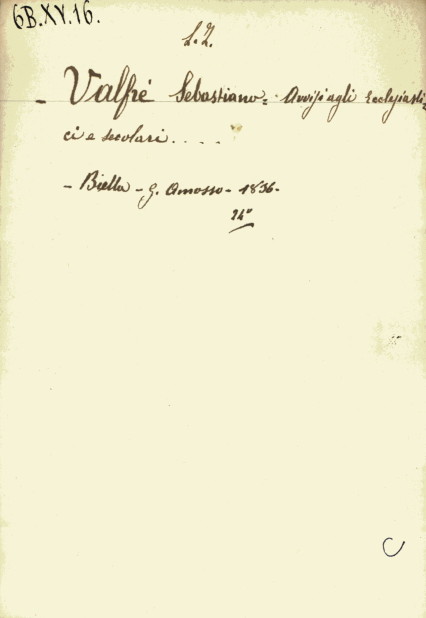 6B.XV.16.
L.Z.
- Valfrè Sebastiano = Avvisi agli Ecclesiasti=
ci e secolari . . . .
- Biella - G. Amosso - 1836 -
24°
C